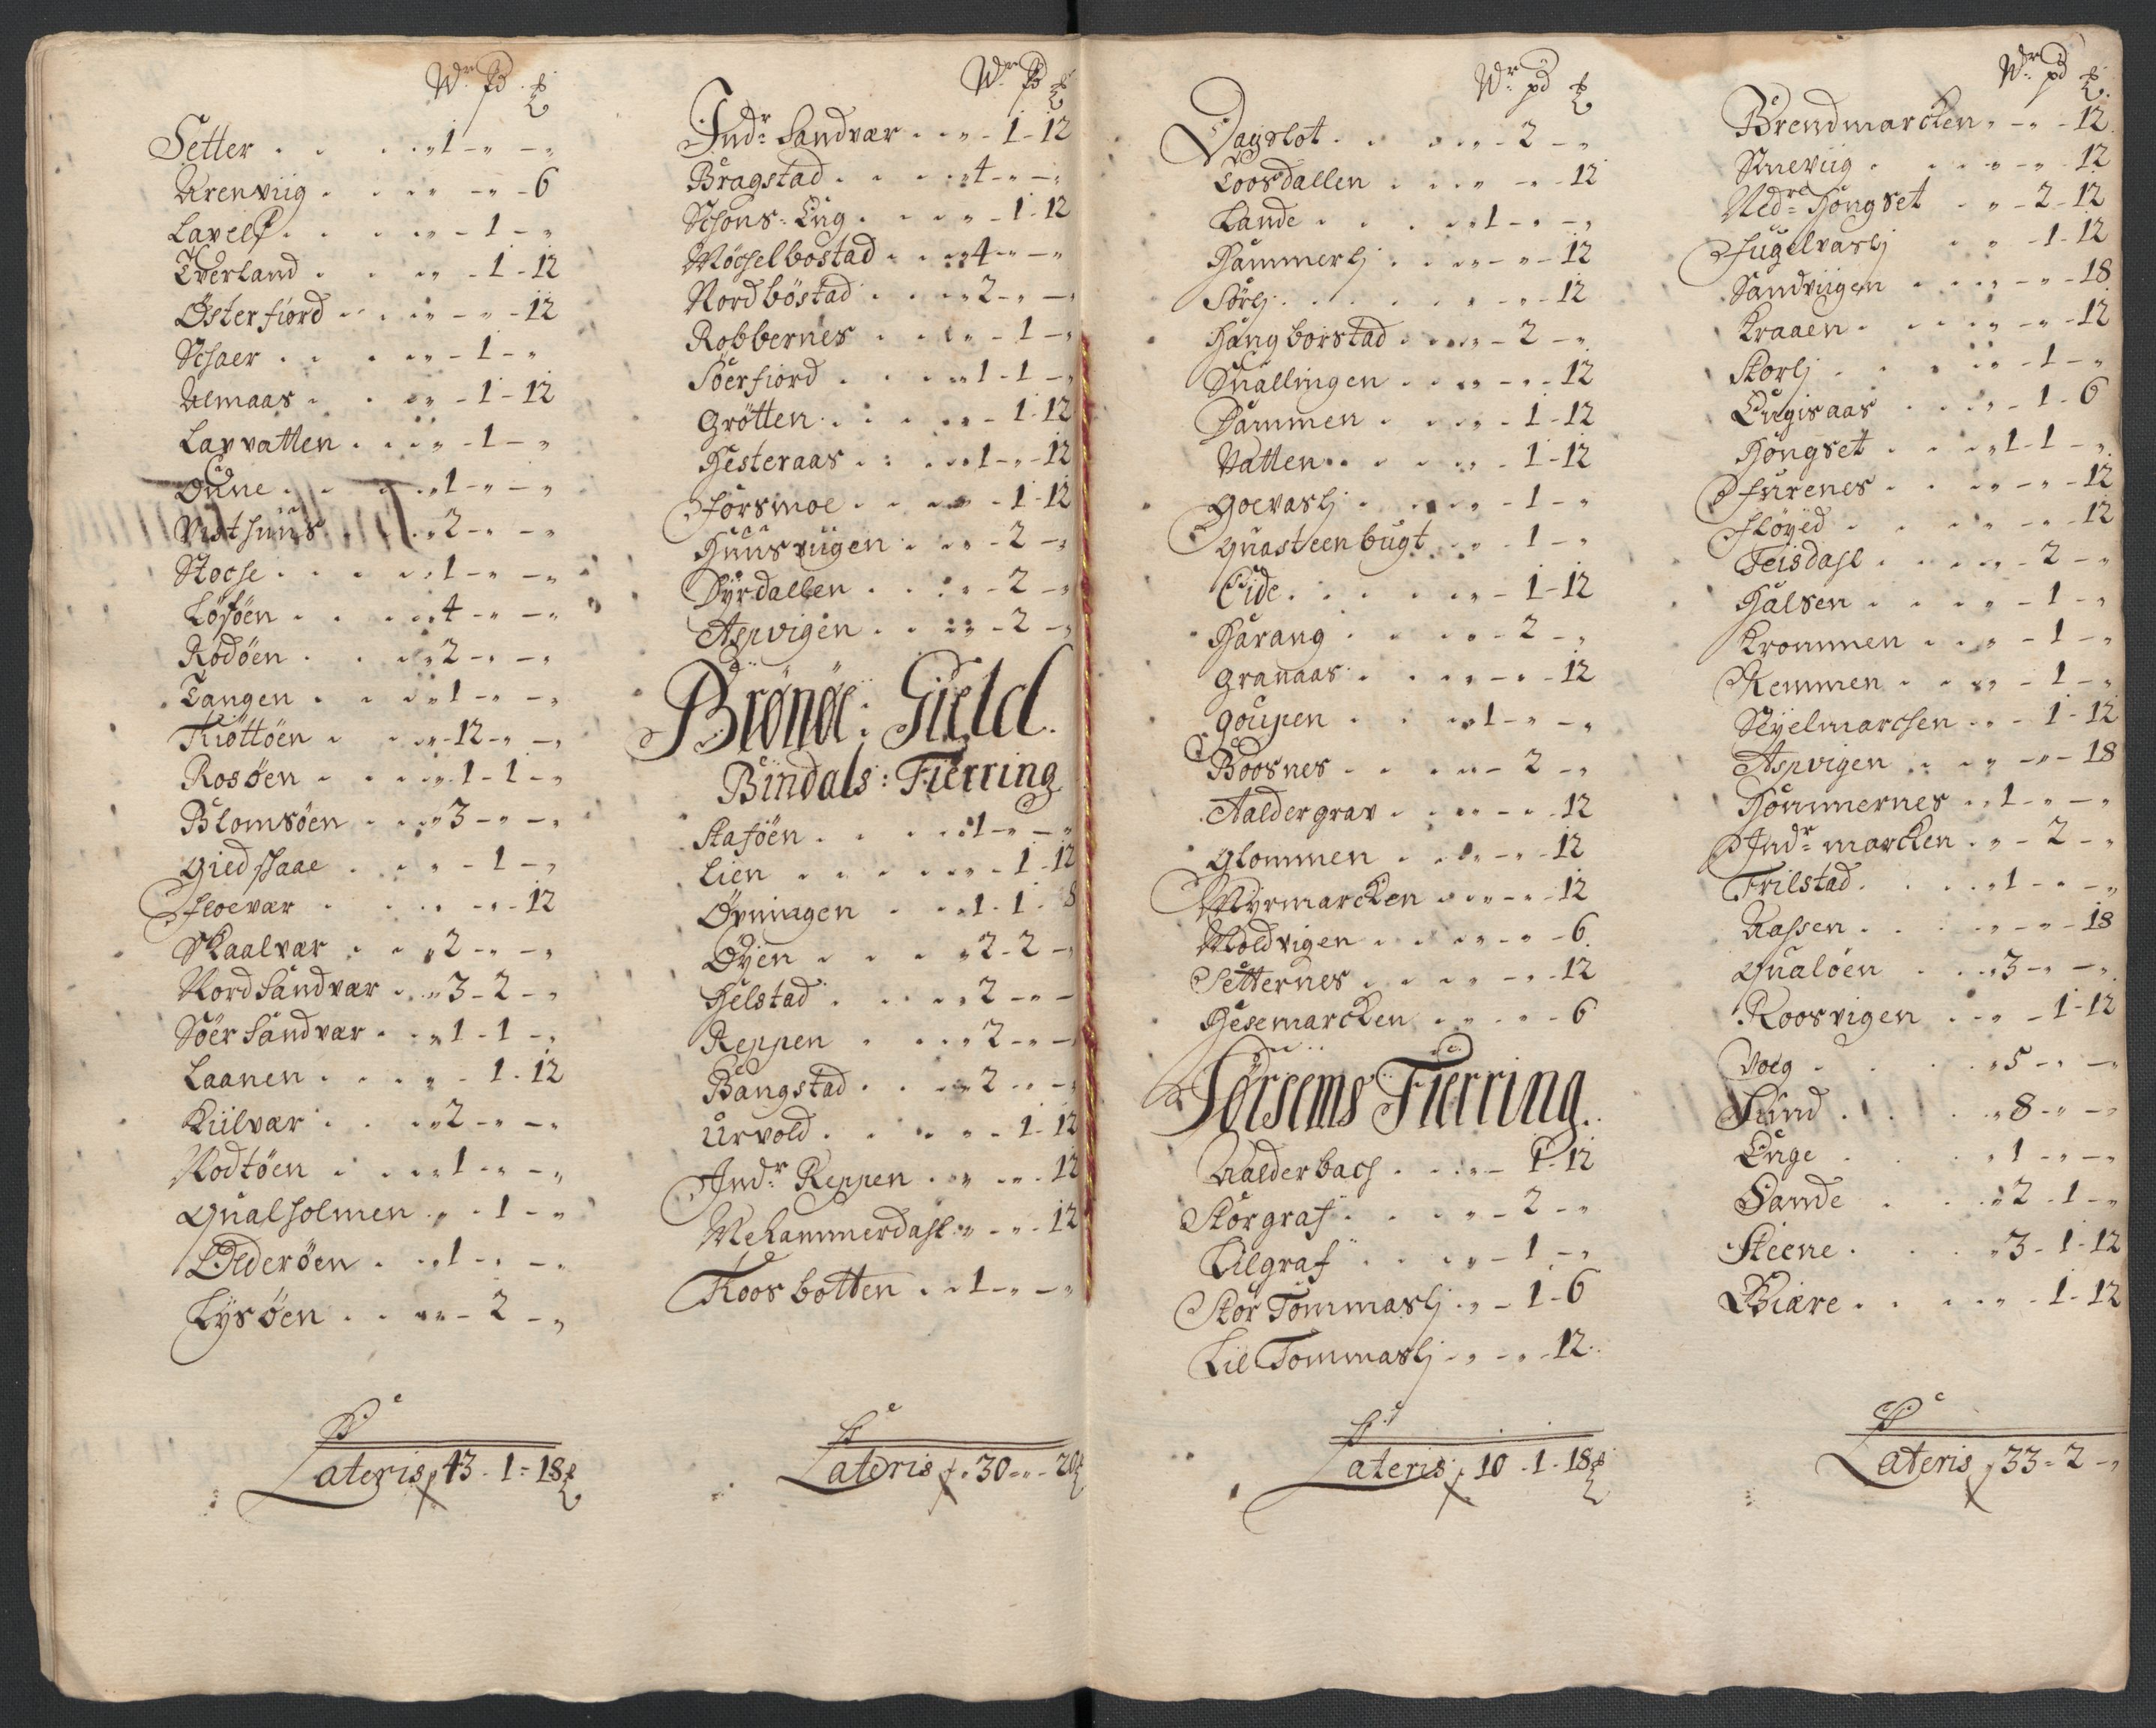 Wr pd ℔
Setter . . . . „ 1 - „ - „
Urenviig . . . „ - „ - 6
Lavelf . . . . „ - 1 - „
Tverland . . . „ - 1 - 12
Österfiord . . . „ - „ - 12
Schaer . . . . „ - 1 - „
Almaas . . . „ - 1 - 12
Lavvatten . . . „ - 1 - „
Ønne . . . . „ 1 - „ - „
Visthuus . . . „ 2 - „ - „
Stoche . . . . „ 1 - „ - „
Løføen . . . „ 4 - „ - „
Rødøen . . . „ 2 - „ - „
Tangen . . . „ 1 - „ - „
Kiøttøen . . . „ 12 - „ - „
Rosøen . . . „ 1 - 1 - „
Blomsøen . . . „ 3 - „ - „
Giedskaae . . . „ - 1 - „
Floevær . . . „ - „ - 12
Skaalvær . . „ 2 - „ - „
Nord Sandvær . . „ 3 - 2 - „
Söer Sandvær . . „ 1 - 1 - „
Laanen . . . „ - 1 - 12
Kiilvær . . . „ 2 - „ - „
Rodtöen . . . „ 1 - „ - „
Qualholmen . „ - 1 - „
Olderöen . . „ 1 - „ - „
Lysøen . . . „ - 2 - „
Lateris 43 - 1 - 18 ℔
Wr pd ℔
Indr Sandvær . . „ - 1 - 12
Bragstad . . . „ 4 - „ - „
Schons-Eng . . . „ - 1 - 12
Møchelbostad . . „ 4 - „ - „
Nordböstad . . . „ 2 - „ - „
Robbernes . . . „ - 1 - „
Söerfiord . . . „ 1 - 1 - „
Grøtten . . . . „ - 1 - 12
Hesteraas . . . „ 1 - „ - 12
Forsmoe . . . „ - 1 - 12
Huusviigen . . „ - 2 - „
Dyrdallen . . . „ - 2 - „
Aspvigen . . . „ - 2 - „
Brønøe: Gield.
Bindals: Fierring
Staføen . . . . „ 1 - „ - „
Lien . . . . . „ - 1 - 12
Øvningen . . „ 1 - 1 - 8
Øyen . . . „ 2 - 2 - „
Helstad . . . „ 2 - „ -
Reppen . . . „ 2 - „ -
Bangstad . . „ 2 - „ -
Urvold . . . „ - 1 - 12
Indr Reppen . . „ - „ - 12
Mehammerdahl „ - „ - 12
Koosbotten . . „ 1 - „ - „
Lateris „ 30 - „ - 20 ℔
Wr pd ℔
Dagslot . . . „ - 2 - „
Toosdallen . . . „ - „ - 12
Lande . . . . „ 1 - „ - „
Hammerlj . . . „ - „ - 12
Sörlj . . . . „ - „ - 12
Hangborstad . . „ - 2 - „
Snällingen . . . „ - „ - 12
Dammen . . . „ - 1 - 12
Vatten . . . . „ - 1 - 12
Goevaslj . . . „ - 1 - „
Quasteenbugt . „ - 1 - „
Eide . . . . . „ - 1 - 12
Harang . . . „ - 2 - „
Granaas . . . „ - „ - 12
Goupen . . . „ 1 - „ - „
Boosnes . . . „ - 2 - „
Aaldergrav . . . „ - „ - 12
Glommen . . . „ - „ - 12
Myrmarcken . „ - „ - 12
Moldvigen . . . „ - „ - 6
Setternes . . . „ - „ - 12
Hesemarcken . . „ - „ - 6
Torsems Fierring.
Aalderbach . . . „ - 1 - 12
Storgraf . . . „ - 2 - „
Lilgraf . . . „ - 1 - „
Stor Tommaslj . „ - 1 - 6
Lil Tommaslj . „ - „ - 12
Lateris 10 - 1 - 18 ℔
Wr pd ℔
Brendmarcken „ - „ - 12
Smeviig . . . „ - „ - 12
Nedre Hongset . „ - 2 - 12
Fugelvaslj . „ - 1 - 12
Sandviigen . . . „ - „ - 18
Kraaen . . . „ - „ - 12
Storlj . . . „ - 1 - „
Engisaas . . . „ - 1 - 6
Hongset . . . „ 1 - 1 - „
Furenes . . . „ - „ - 12
Fløyed . . . „ - „ - 12
Teisdahl . . . „ - 2 - „
Halsen . . . „ - 1 - „
Krommen . . . „ - 1 - „
Remmen . . „ - 1 - „
Seyelmarchen . . „ - 1 - 12
Aspvigen . . „ - „ - 18
Hommernes . „ 1 - „ - „
Indr marcken . „ - 2 - „
Trilstad . . . „ 1 - „ - „
Aassen . . . „ - „ - 18
Qualøen . . . „ 3 - „ - „
Roosvigen . . „ - 1 - 12
Voeg . . . . „ 5 - „ - „
Sund . . . „ 8 - „ - „
Enge . . . . „ 1 - „ - „
Sande . . . „ 2 - 1 - „
Steene . . . „ 3 - 1 - 12
Biære . . . „ - 1 - 12
Lateris 33 - 2 - „